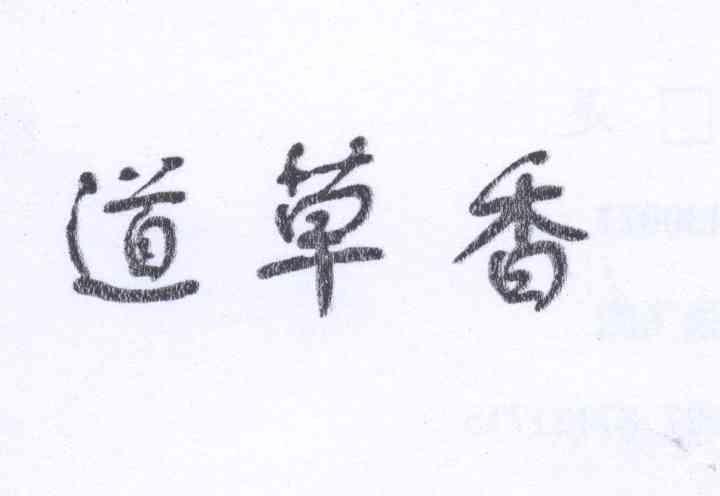 道草香